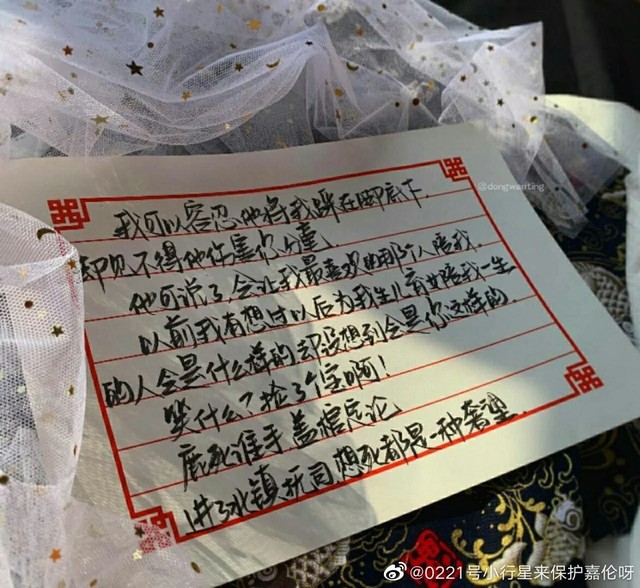 我可以容忍他将我踩在脚底下.
却见不得他伤害你分毫.
他可说了,会让我最喜欢的那个人陪我.
以前我有想过以后为我生儿育女陪我一生
的人会是什么样的却没想到会是你这样的.
笑什么?捡了个宝啊!
鹿死谁手盖棺定论
进了北镇抚司,想死都是一种奢望.
@dongwanting
@0221号小行星来保护嘉伦呀